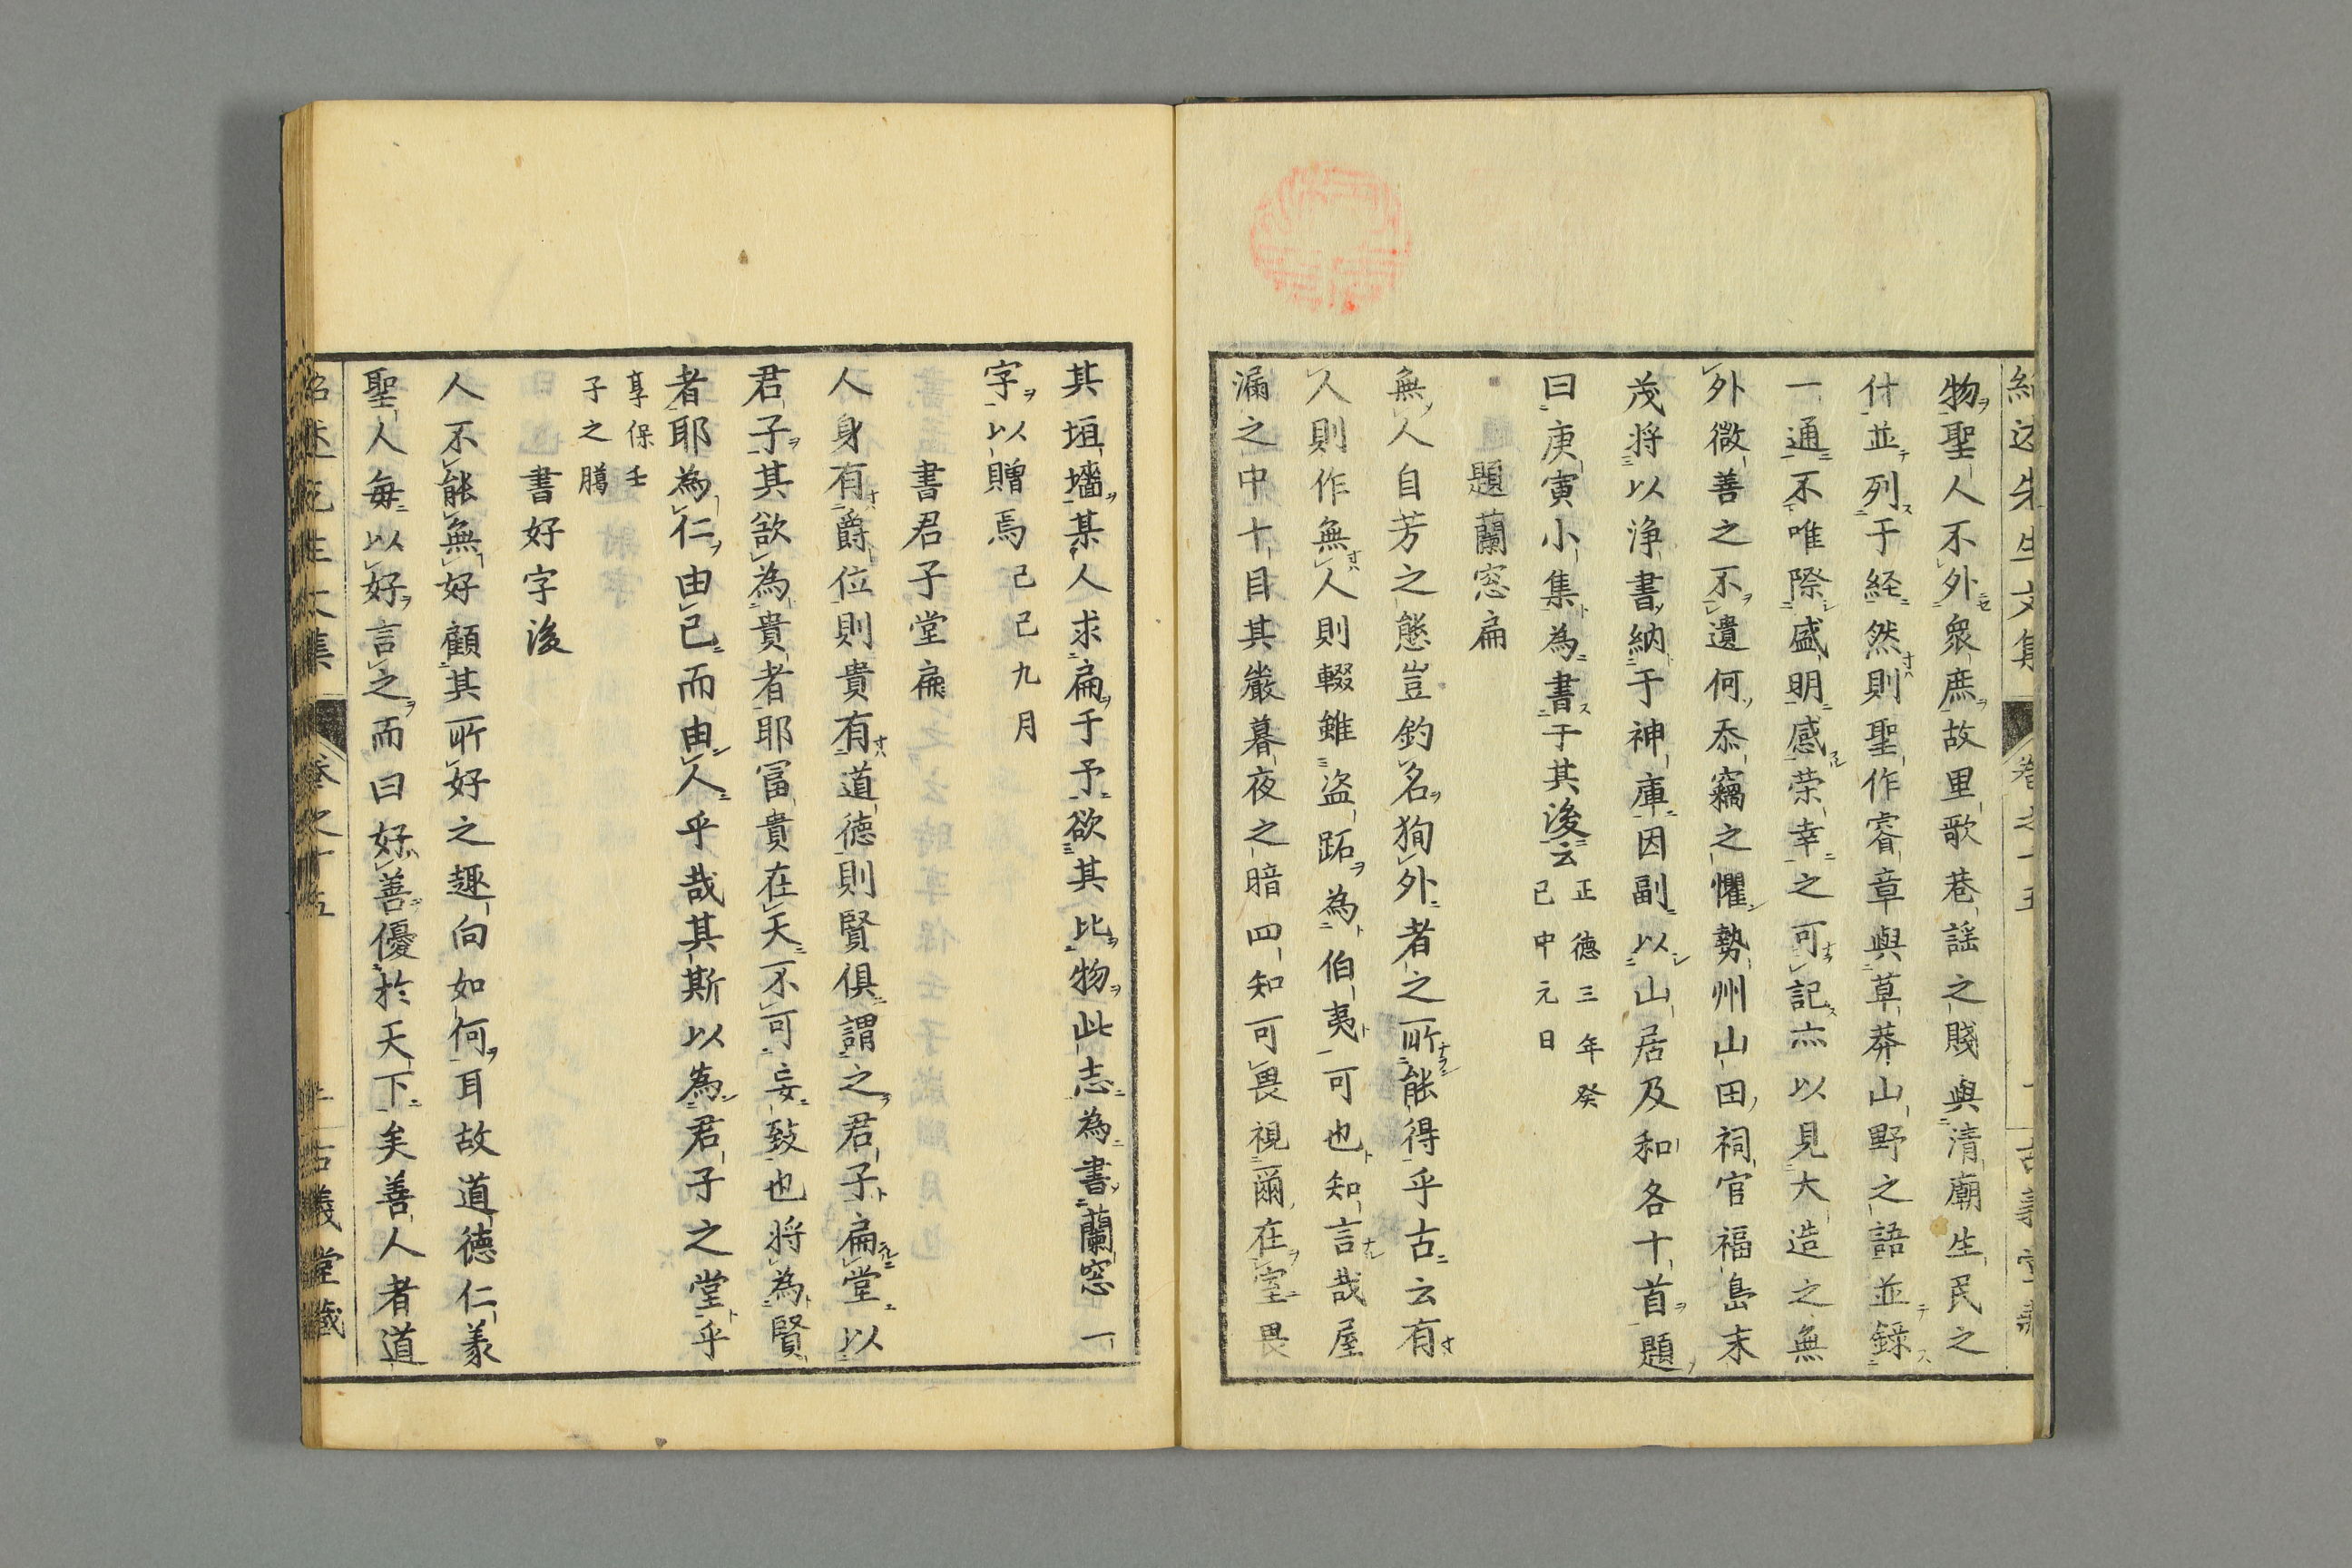 紹述先生文集 卷之十五 古義堂藏
物聖人不外衆庶故里歌巷謡之賤與清廟生民之
什並列于経然則聖作睿章與草莽山野之語並録
一通不唯際盛明感荣幸之可記亦以見大造之無
外微善之不遺何忝竊之懼勢州山田祠官福島末
茂将以浄書納于神庫因副以山居及和各十首題
曰庚寅小集為書于其後云正德三年癸
巳中元日
題蘭窓扁
無人自芳之態豈釣名狥外者之所能得乎古云有
人則作無人則輟雖盗跖為伯夷可也知言哉屋
漏之中十目其嚴暮夜之暗四知可畏視爾在室畏
其垣墻某人求扁于予欲其比物此志為書蘭窓一
字以贈焉己巳九月
書君子堂扁
人身有爵位則貴有道德則賢俱謂之君子扁堂以
君子其欲為貴者耶冨貴在天不可妄致也将為賢
者耶為仁由己而由人乎哉其斯以為君子之堂乎
享保壬
子之臈
書好字後
人不能無好顧其所好之趣向如何耳故道德仁義
聖人每以好言之而曰好善優於天下矣善人者道
紹述先生文集 卷之十五 古義堂藏